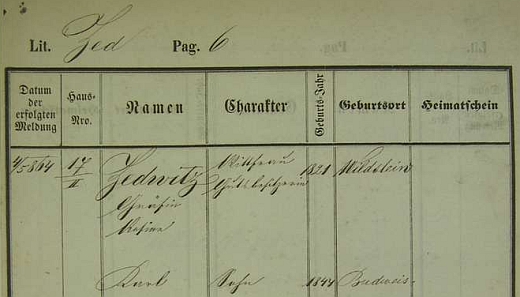 Lit. Zed Pag. 6
Datum der erfolgten Meldung Haus- Nro. Namen Charakter Geburts-Jahr Geburtsort Heimatschein
4/5 864 17/II Zedwitz Wittfrau 1821 Wildstein
Gräfin Gutsbesitzerin
Karl Sohn 1844 Budweis